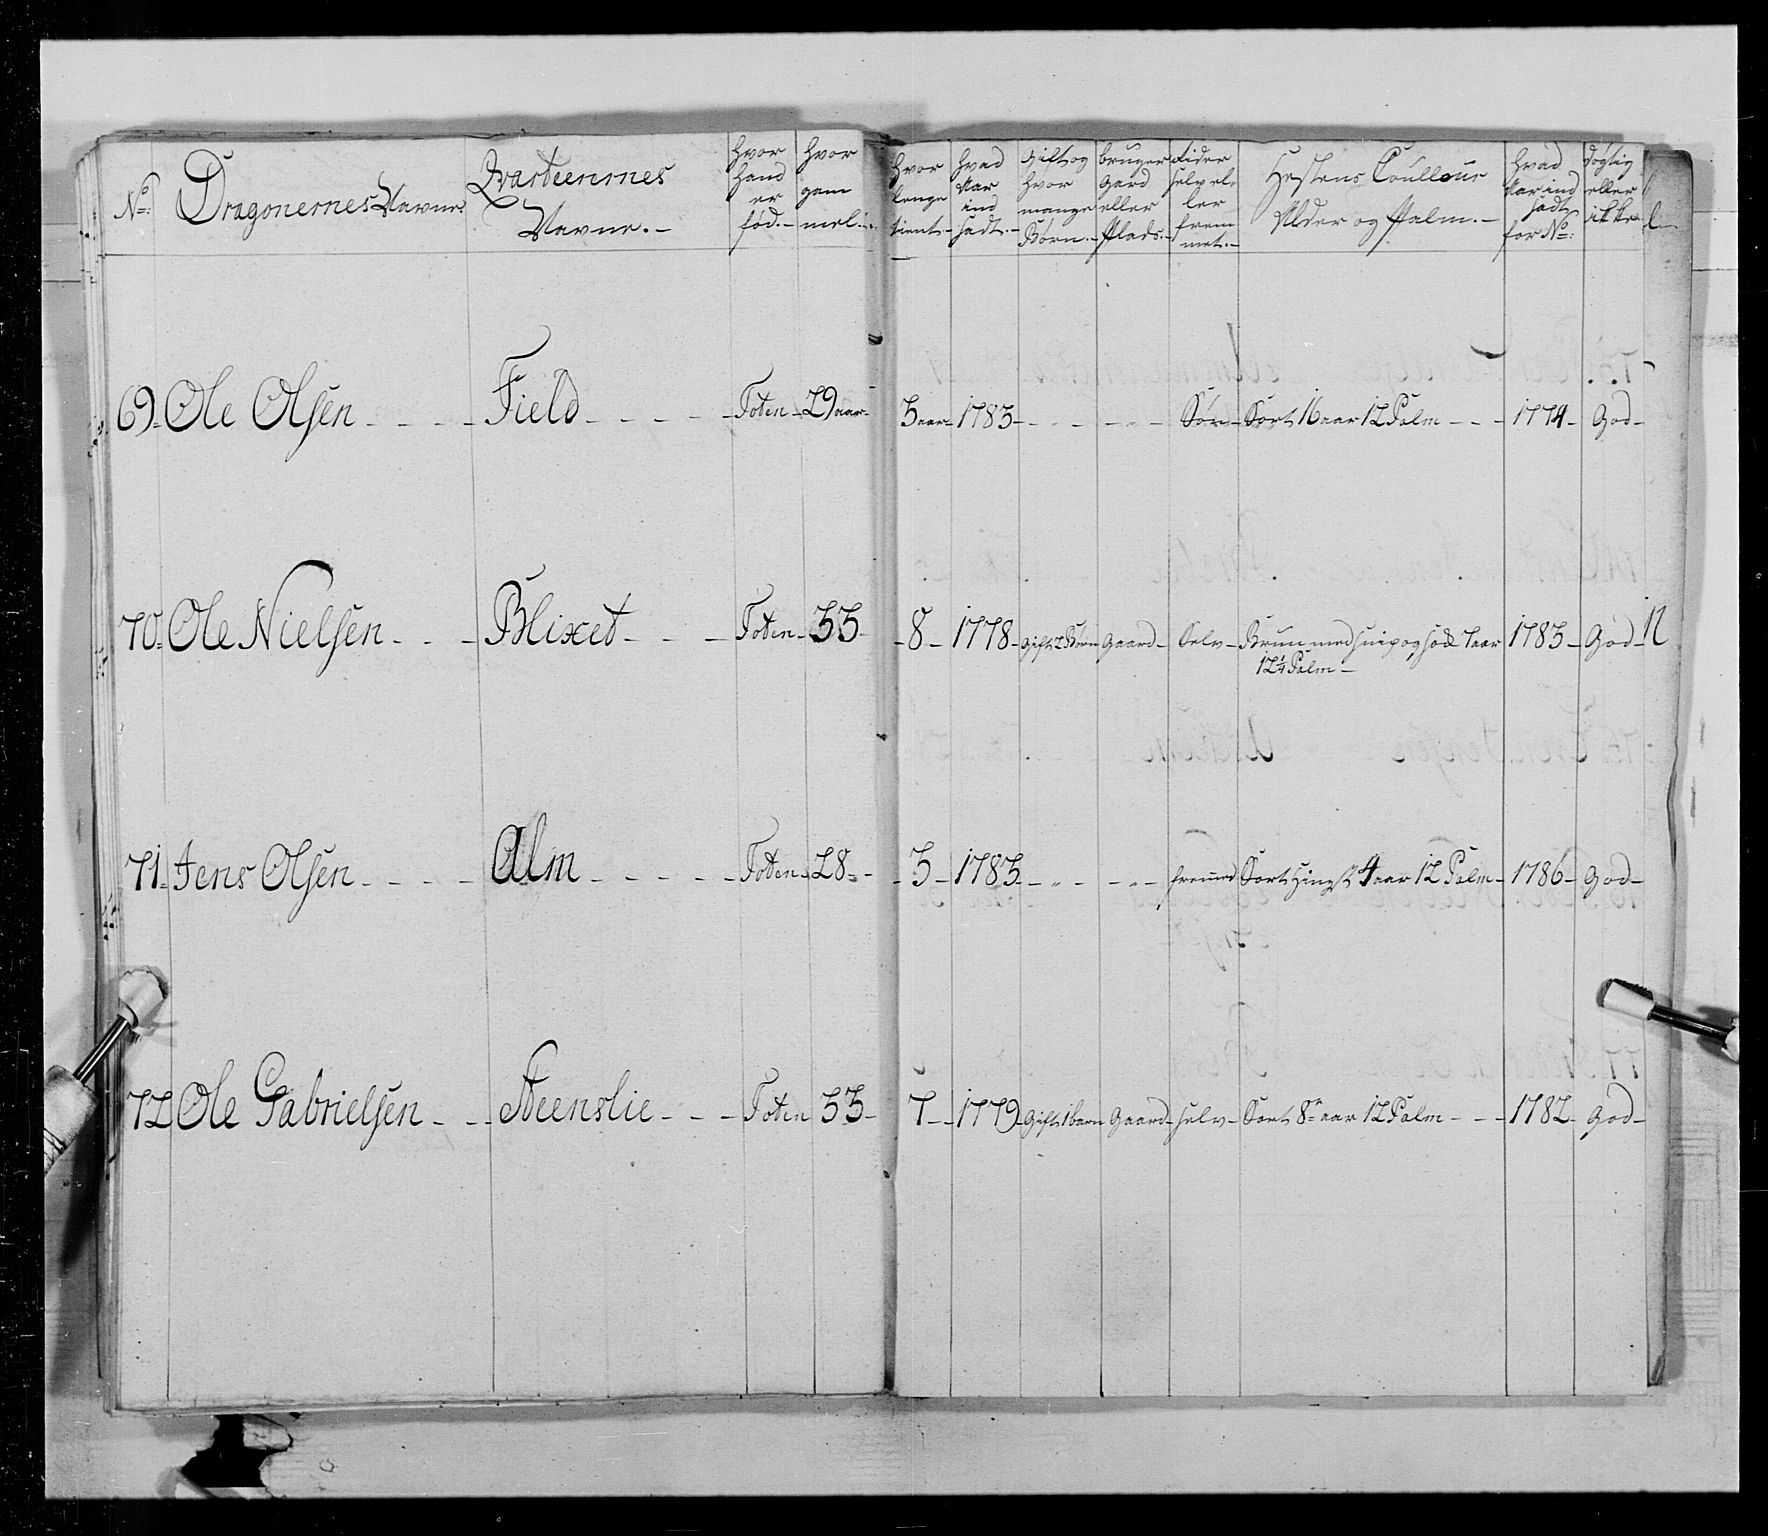 No: Dragonernes Navne. Qvarteernes Navne.- hvor hand er fød.- hvor gam mel.- hvor lenge tient- hvad Aar ind sadt.- Gift og hvor mange Børn.- bruger Gard eller Plads.- Rider selv el- ler frem met.- Hestens Coulleur Alder og Palm.- hvad Aar ind sadt for No: dygtig eller ikke
69. Ole Olsen - - - - Field - - - - - Toten - 29 aar- 3 aar- 1783- - - - - " - Sør- Sort 16 aar 12 Palm - - - 1774- God-
70. Ole Nielsen - - - Blixet - - - Toten - 33- -8- 1778- Gift 2 Børn Gaard- Selv- Brun med snip og sade 7 aar 1783- God-
12¼ Palm -
71. Jens Olsen - - - - Alm - - - - - Toten - 28- - -3- 1783- - " - - " - fremmed Sort Hingst 4 aar 12 Palm- 1786- God-
72 Ole Gabrielsen - - Steenslie - - - Toten 33- 7- - 1779- Gift 1 barn Gaard- selv- Sort 8 aar 12 Palm - - - 1782- God-